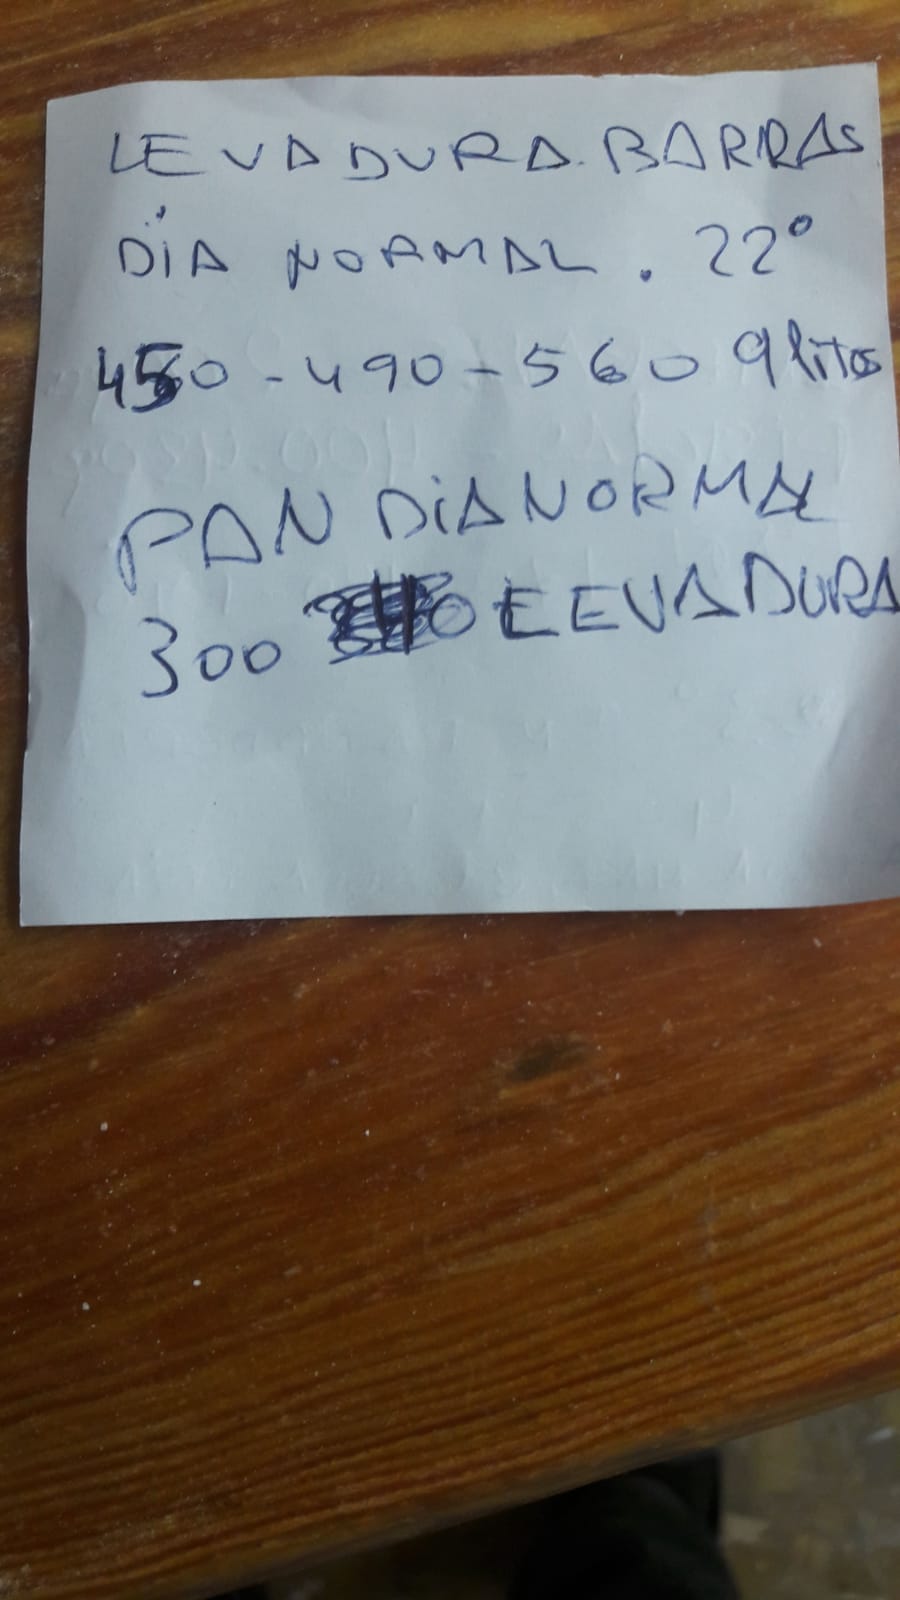 LEVADURA. BARRAS
DÍA NORMAL. 22°
450 - 490 - 560 9 litos
PAN DIA NORMAL
300 LEVADURA